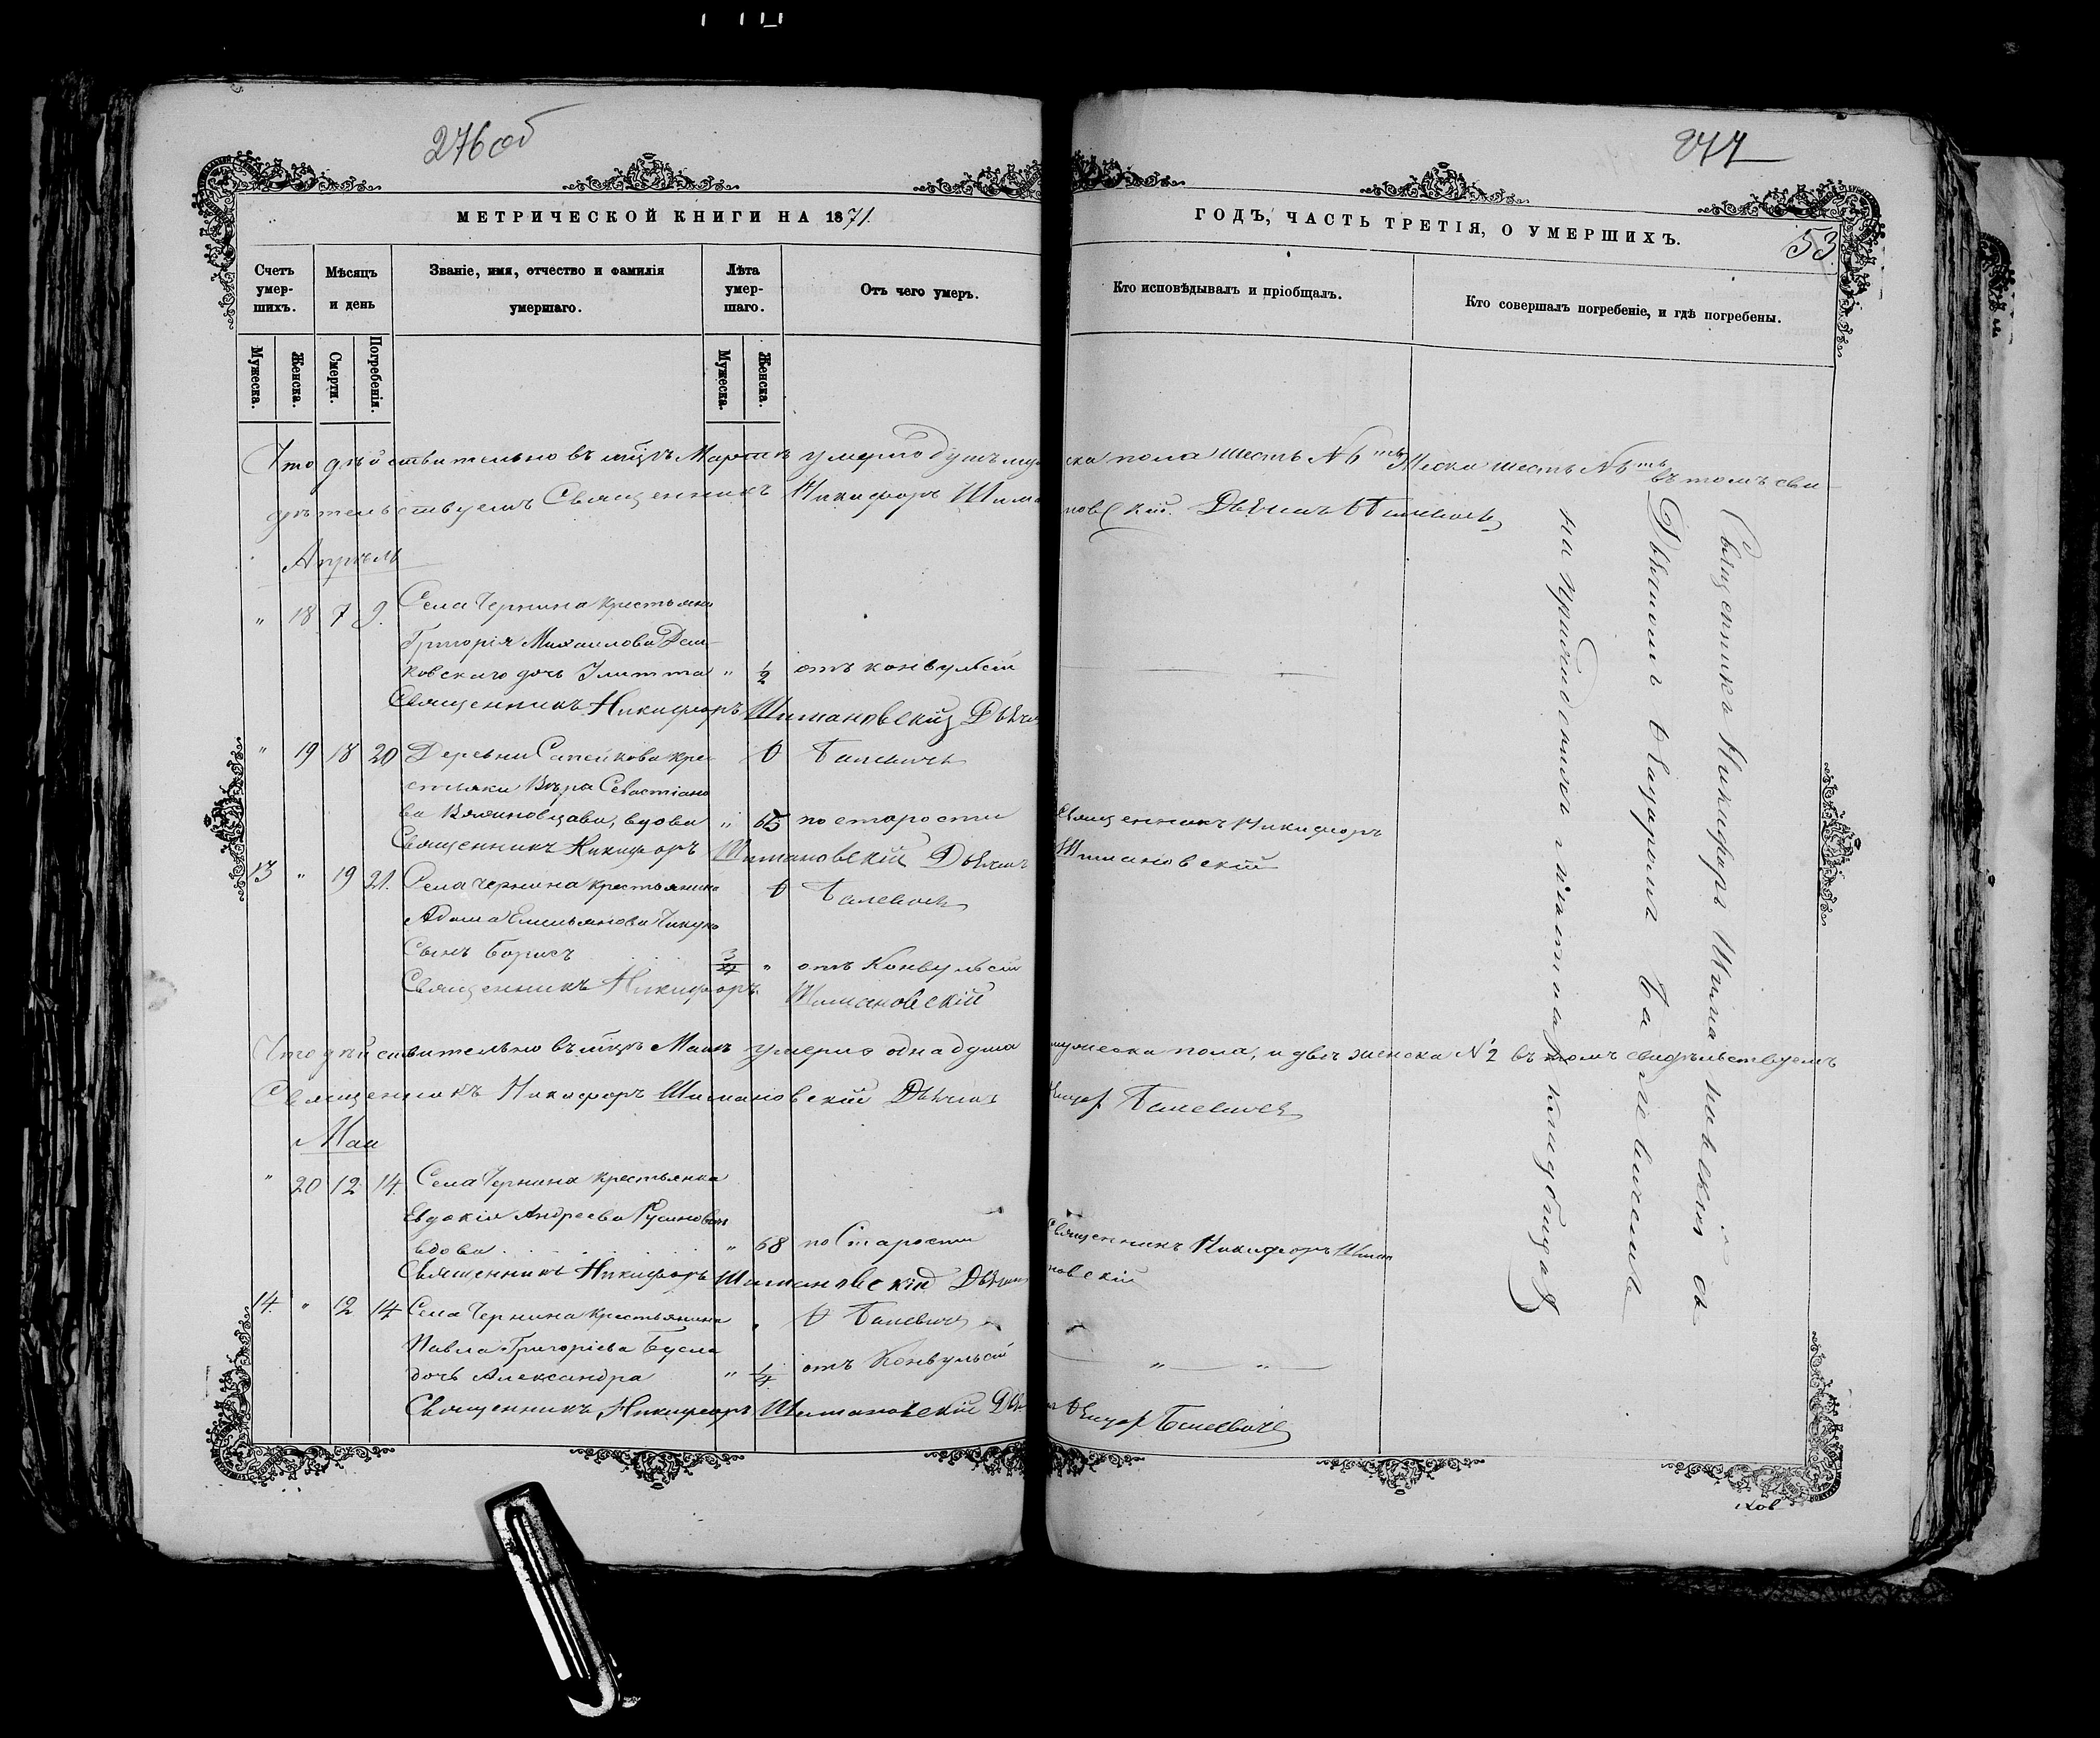 276 об
277
МЕТРИЧЕСКОЙ КНИГИ НА 1871.
ГОДЪ, ЧАСТЬ ТРЕТІЯ, О УМЕРШИХЪ.
53
Счетъ умер-шихъ.
Мѣсяцъ и день
Званіе, имя, отчество и фамилія умершаго.
Лѣта умер-шаго.
Отъ чего умеръ.
Кто исповѣдывалъ и пріобщалъ.
Кто совершалъ погребеніе, и гдѣ погребены.
Мужеска.
Женска.
Смерти.
Погребенія.
Мужеска.
Женска.
Что дѣйствительно въ мцѣ Мартѣ умерло душъ му
ска пола шесть №6ть Женска шесть №6ть въ томъ сви-
дѣтельствуемъ Священникъ Никифоръ Шима
новскій. Дьячекъ Балевичъ
Апрѣль
" 18 7 9. Села Чернина крестьянина
Григорія Михаилова
ковскаго дочь Улитта " 1/2 отъ конвульсій
Священникъ Никифоръ Шимановскій Дьяче
" 19 18 20 Деревни кре-
стьянка Вѣра Севастіано
ва вдова " 65 по старости
Балевичъ
Священникъ Никифоръ
Шимановскій
Священникъ Никифоръ Шимановскій Дьячекъ
13 " 19 21. Села Чернина крестьянина
Балевичъ
Адама Емельянова
Сынъ Борисъ 3 " отъ Конвульсій
Священникъ Никифоръ Шимановскій
Что дѣйствительно въ мцѣ Маѣ умерло одна душа
мужеска пола, и двѣ женска №2 въ томъ свидѣтельствуемъ
Священникъ Никифоръ Шимановскій Дьячекъ
Балевичъ
Май
" 20 12 14. Села Чернина крестьянка
Евдокія Андреева
вдова " 68 по Старости
Священникъ Никифоръ Шима
новскій
Священникъ Никифоръ Шимановскій Дьячекъ
14. " 12 14 Села Чернина крестьянина
Балевичъ
Павла Григоріева Бусла
дочь Александра " 1/4 отъ Конвульсій
" "
Священникъ Никифоръ Шимановскій Дья
Балевичъ
Священникъ Никифоръ Шимановскій съ
Дьячкомъ Балевичемъ
на приходскомъ кладбищѣ